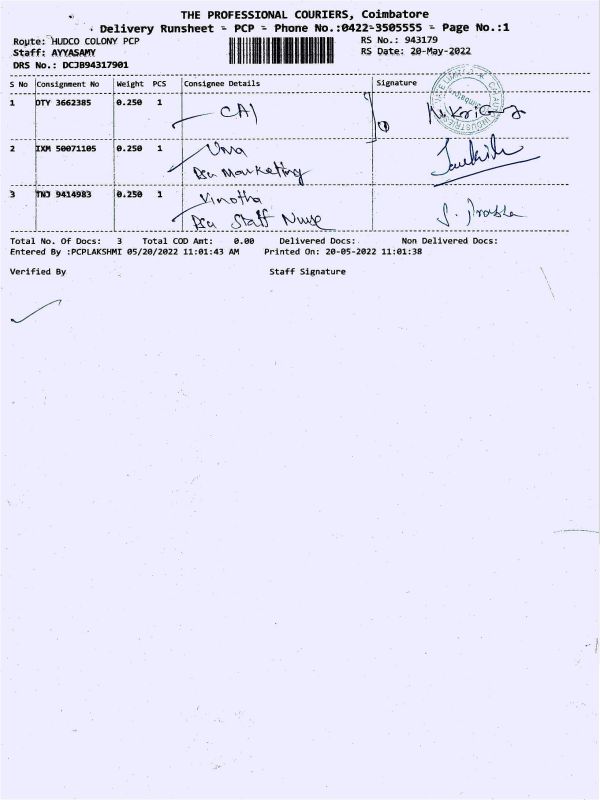 THE PROFESSIONAL COURIERS, Coimbatore
Delivery Runsheet - PCP - Phone No.:0422-3505555 - Page No.:1
Route: HUDCO COLONY PCP
RS No.: 943179
Staff: AYYASAMY
RS Date: 20-May-2022
DRS No.: DCJB94317901
S No Consignment No Weight PCS Consignee Details Signature
1 OTY 3662385 0.250 1 CAI
2 IXM 50071105 0.250 1 Uma
Marketing
3 TNJ 9414983 0.250 1 Vinotha
Staff Nurse
Total No. Of Docs: 3 Total COD Amt: 0.00 Delivered Docs: Non Delivered Docs:
Entered By :PCPLAKSHMI 05/20/2022 11:01:43 AM Printed On: 20-05-2022 11:01:38
Verified By Staff Signature